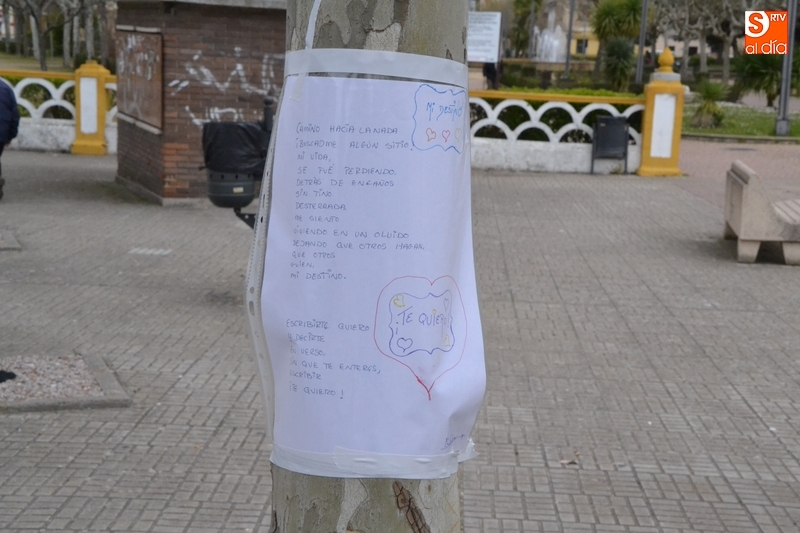 MI DESTINO
CAMINO HACIA LA NADA
BUSCADME ALGÚN SITIO.
MI VIDA,
SE FUÉ PERDIENDO.
DETRÁS DE ENGAÑOS
SIN TINO
DESTERRADA
ME SIENTO
VIVIENDO EN UN OLVIDO
DEJANDO QUE OTROS HAGAN
QUE OTROS
MI DESTINO.
TE QUIERO
ESCRIBIRTE QUIERO
Y DECIRTE
EL VERSO.
QUE TE ENTERES,
ESCRIBIR
¡TE QUIERO!
S RTV
al día